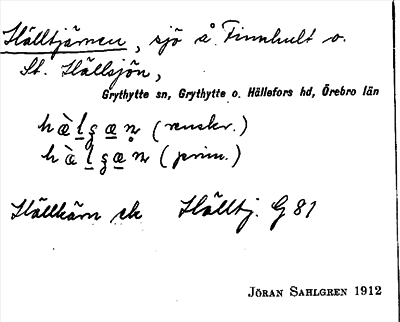 Hälltjärnen, sjö å Finnhult o.
St. Hällsjön,
Grythytte sn, Grythytte o. Hällefors hd, Örebro län
(renskr.)
(prim.)
Hällkärn ek Hälltj. G 81
JÖRAN SAHLGREN 1912